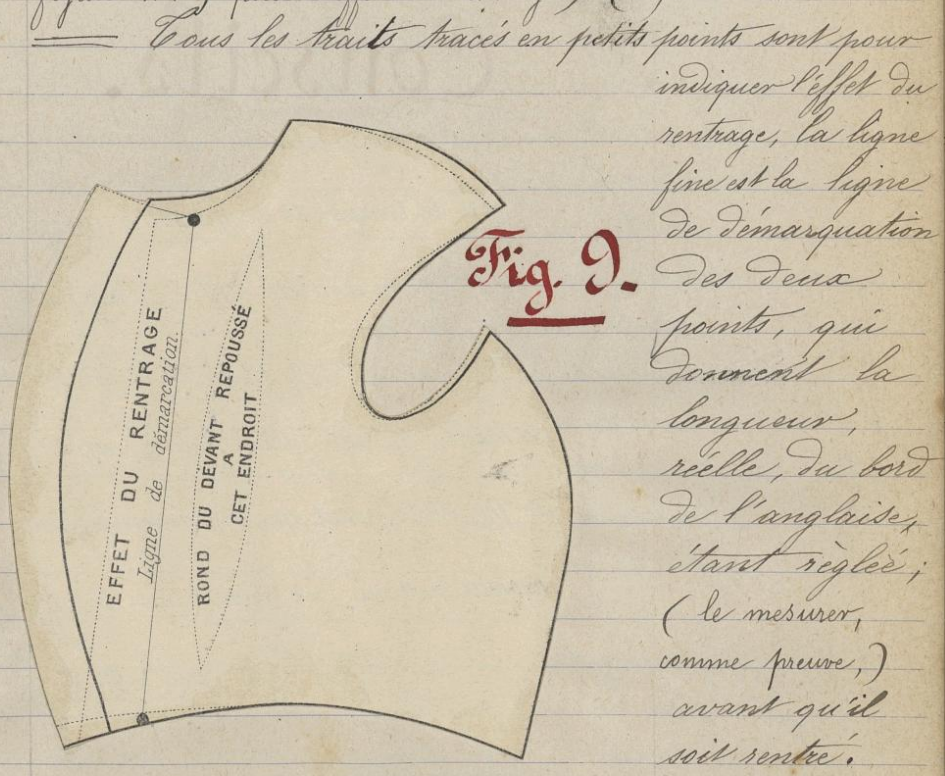 Tous les traits tracés en petits points sont pour
indiquer l'éffet du
rentrage, la ligne
fine est la ligne
de démarquation
des deux
points, qui
donnent la
longueur,
réelle, du bord
de l'anglaise,
étant règlée;
( le mesurer,
comme preuve,)
avant qu'il
soit rentré.
Fig. 9.
EFFET DU RENTRAGE
Ligne de démarcation
ROND DU DEVANT REPOUSSÉ
A
CET ENDROIT